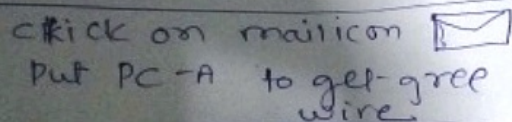 click on mailicon
Put PC-A to get-gree
wire